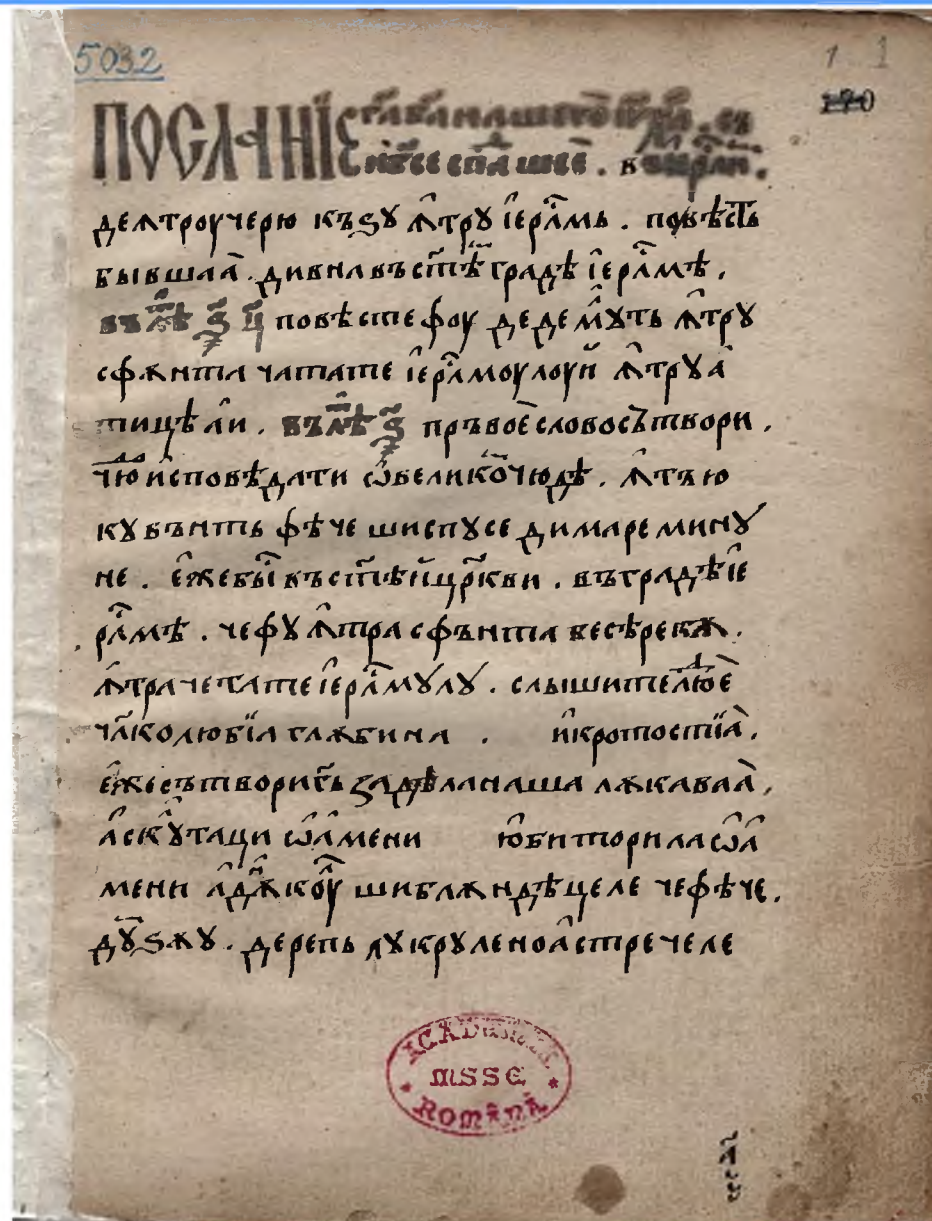 5032
1. 1
170
ПОСЛАНІЄ
деѧтроучерю къѕꙋ ꙟтрꙋ їерⷭ҇лмь . повѣсть
бывшаа̀ . дивна въ ст҃ѣ градѣ їерⷭ҇лмѣ .
въ повѣсте фоу деде мꙋть ꙟтрꙋ
сфѫнта чатате їерⷭ҇лмоулоуи ꙟтрꙋ а̀
тицѣ ли . прьвое слово сътвори .
исповѣдати ѡ҆ велико чюдѣ . ꙟтъю
кꙋвънть фѣче ши спꙋсе ди маре минꙋ
не . є҆же бы́ въ ст҃ѣи црⷪ҇кви . въ градѣ їе
рⷭ҇лмѣ . че фꙋ ꙟтра сфънта бесѣрекѫ .
ꙟтра четате їерⷭ҇лмꙋлꙋ . слышите
чл҃колюбїа глѫбина . и҆ кротостїа̀ .
є҆же сътвори гь за дѣла наша лѫкаваа̀ .
а҆скꙋлтаци ѡ҆амени юбитори ла ѡ҆а
мени а҆дѫнкоу ши блѫндѣцеле че фѣче .
дꙋмнѕѫꙋ . дерепь лꙋкрꙋле ноастре челе
ACADEMIA
MSSE
ROMÂNĂ